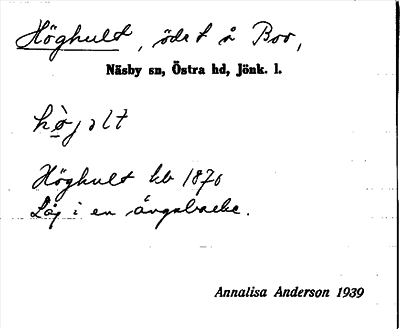 Höghult, öde t å Boo,
Näsby sn, Östra hd, Jönk. l.
hø̀jɔlt
Höghult kb 1870
Låg i en ängsbacke.
Annalisa Anderson 1939